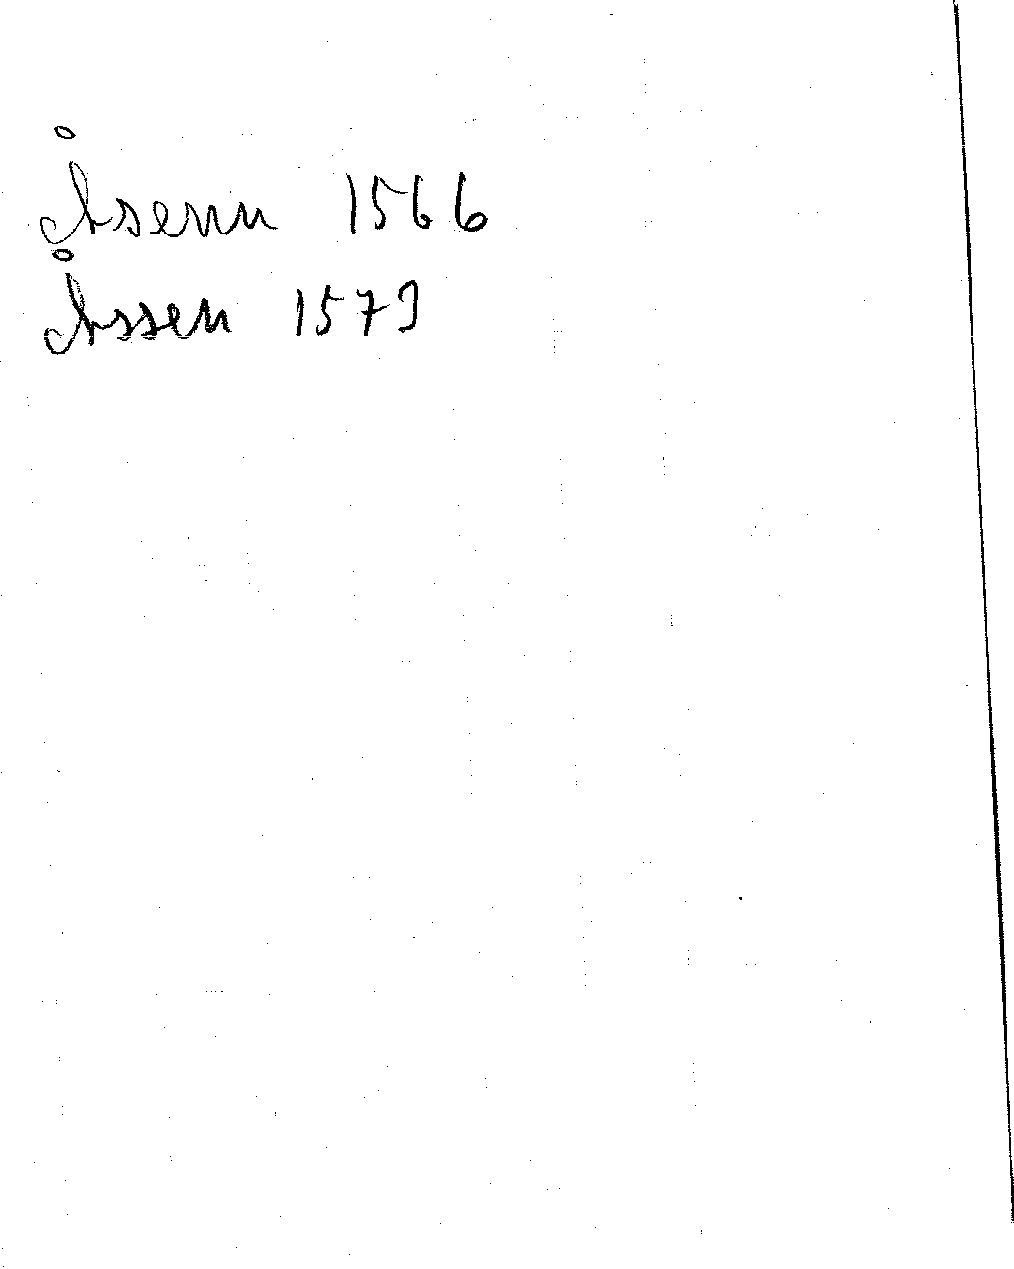 Åsenn 1566
Åssen 1579